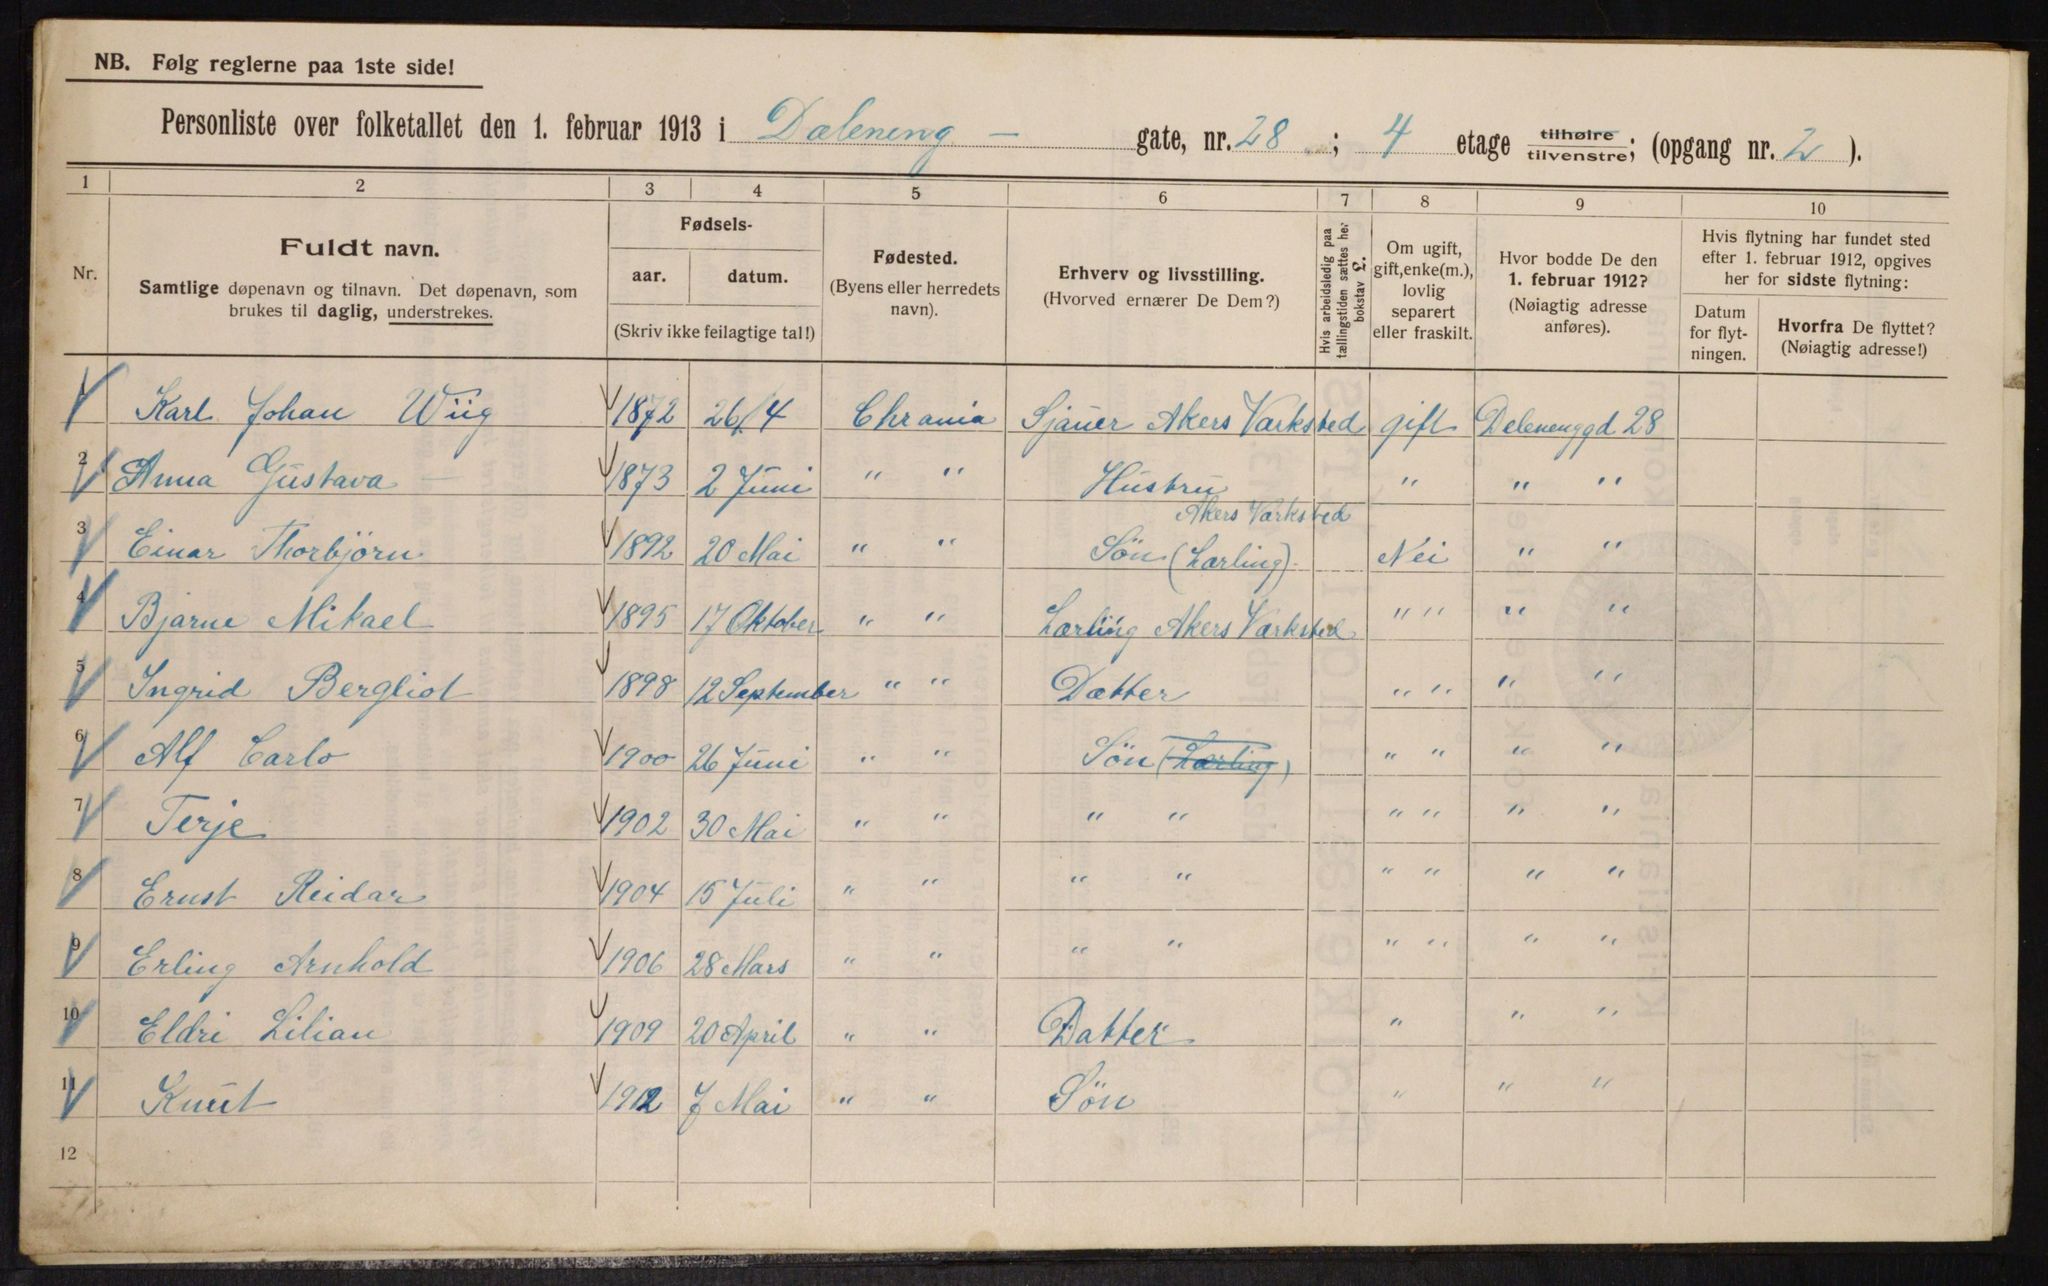 NB. Følg reglerne paa 1ste side!
Personliste over folketallet den 1. februar 1913 i Dæleneng - gate, nr. 28 ; 4 etage tilhøire / tilvenstre; (opgang nr. 2 ).
1 2 3 4 5 6 7 8 9 10
Nr.
Fuldt navn.
Samtlige døpenavn og tilnavn. Det døpenavn, som
brukes til daglig, understrekes.
Fødsels-
aar. datum.
(Skriv ikke feilagtige tal!)
Fødested.
(Byens eller herredets
navn).
Erhverv og livsstilling.
(Hvorved ernærer De Dem?)
Hvis arbeidsledig paa
tællingstiden sættes her
bokstav L.
Om ugift,
gift, enke(m.),
lovlig
separert
eller fraskilt.
Hvor bodde De den
1. februar 1912?
(Nøiagtig adresse
anføres).
Hvis flytning har fundet sted
efter 1. februar 1912, opgives
her for sidste flytning:
Datum
for flyt-
ningen.
Hvorfra De flyttet?
(Nøiagtig adresse!)
1 Karl Johan Wiig 1872 26/4 Chrania Sjauer Akers Værksted gift Delenenggd 28
2 Anna Gustava 1873 2 Juni " " Hustru " " "
Akers Værksted
3 Einar Thorbjörn 1892 20 Mai " " Sön (Lærling) Nei " "
4 Bjarne Mikael 1895 17 Oktober " " Lærling Akers Værksted " " " "
5 Ingrid Bergliot 1898 12 September " " Dætter " " " "
6 Alf Carlo 1900 26 Juni " " Sön (Lærling) " " " "
7 Terje 1902 30 Mai " " " " " " " "
8 Ernst Reidar 1904 15 Juli " " " " " " " "
9 Erling Arnhold 1906 28 Mars " " " " " " " "
10 Eldri Lilian 1909 20 April " " Datter " " "
11 Knut 1912 7 Mai " " Sön " " "
12